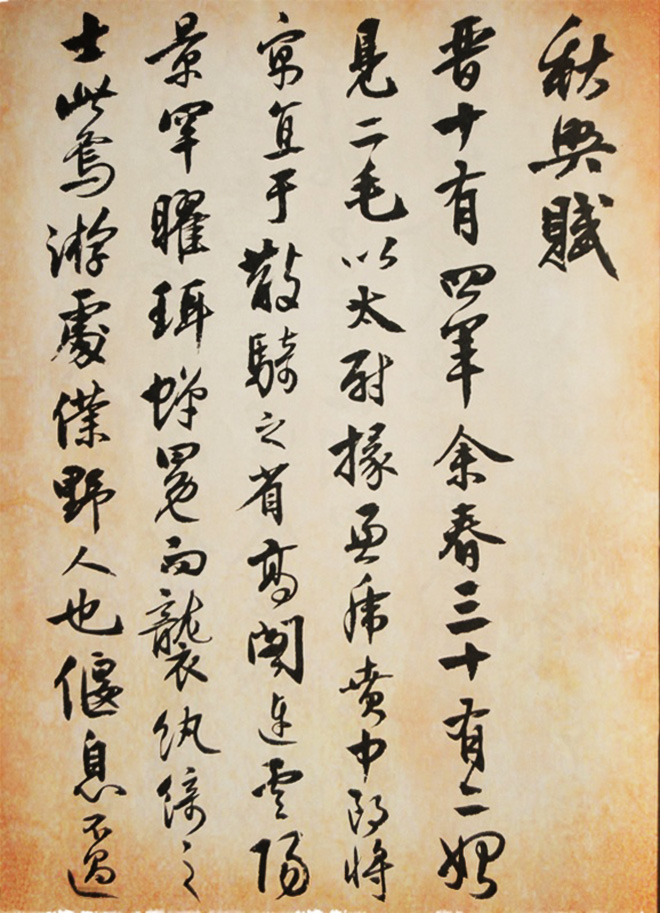 秋興賦
晉十有四年余春秋三十有二始
見二毛以太尉掾兼虎賁中郎將
寓直于散騎之省高閣連雲陽
景罕曜珥蟬冕而襲紈綺之
士此焉游處僕野人也偃息不過